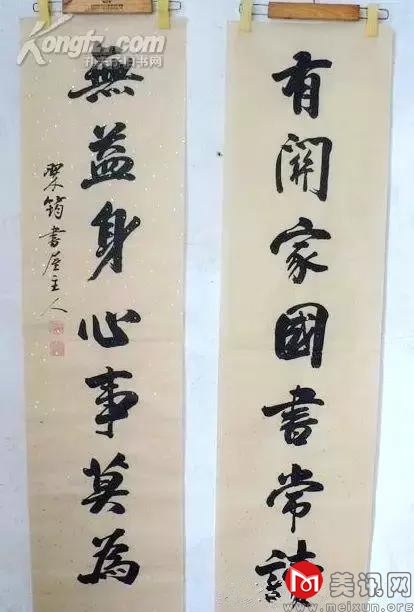 有關家國書常讀
無益身心事莫為
筠書屋主人
Kongfz.com
孔夫子旧书网
美讯网
www.meixun.org